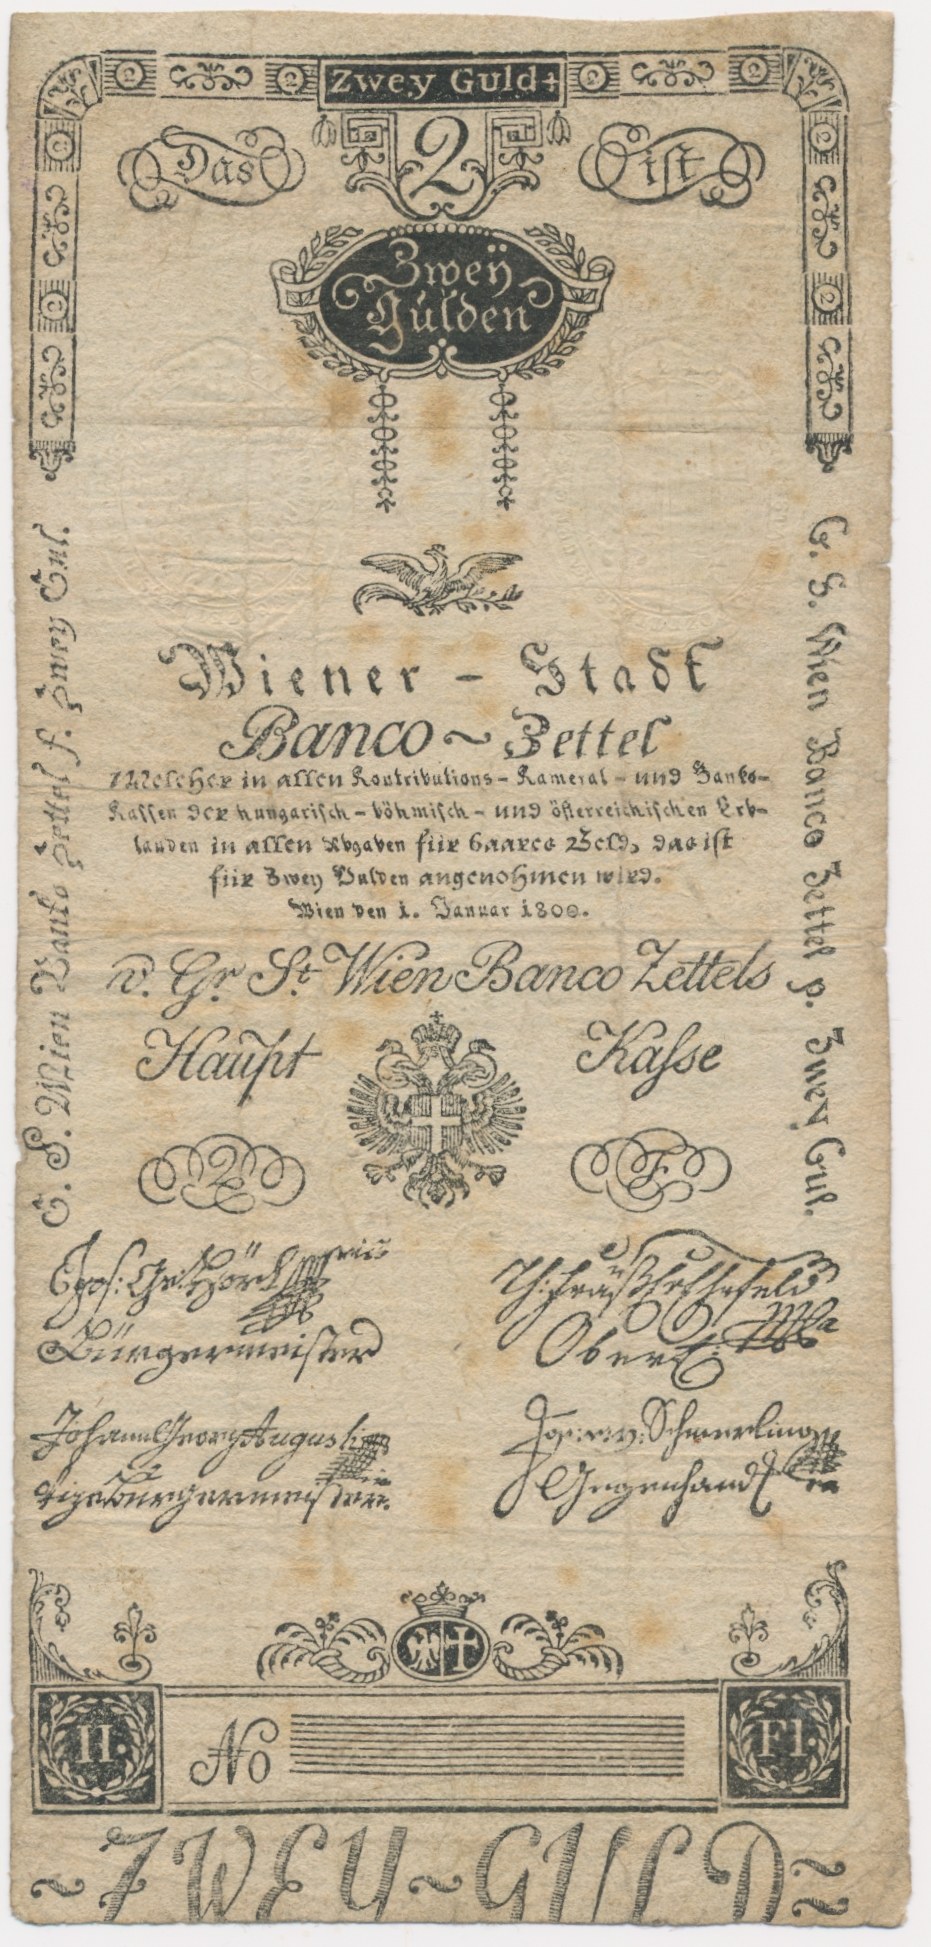 Zwey Guld
2 2 2 2
Das 2 ist
Zweÿ
Gulden
Wiener - Stadt
Banco ~ Zettel
Welcher in allen Kontributions - Kameral - und Banko-
Kassen der hungarisch - böhmisch - und österreichischen Erb-
landen in allen Abgaben für baares Geld, das ist
für Zwey Gulden angenohmen wird.
Wien den 1. Januar 1800.
v. Gr. St. Wien Banco Zettels
Haupt Kasse
2 F
Bürgermeister
Johann Georg Augusti
Vizebürgermeister
v: Schmerling
Gegenhand
G. S. Wien Banko Zettel f. Zwey Gul.
G. S. Wien Banco Zettel p. Zwey Gul.
II. No Fl.
~ ZWEY ~ GULD